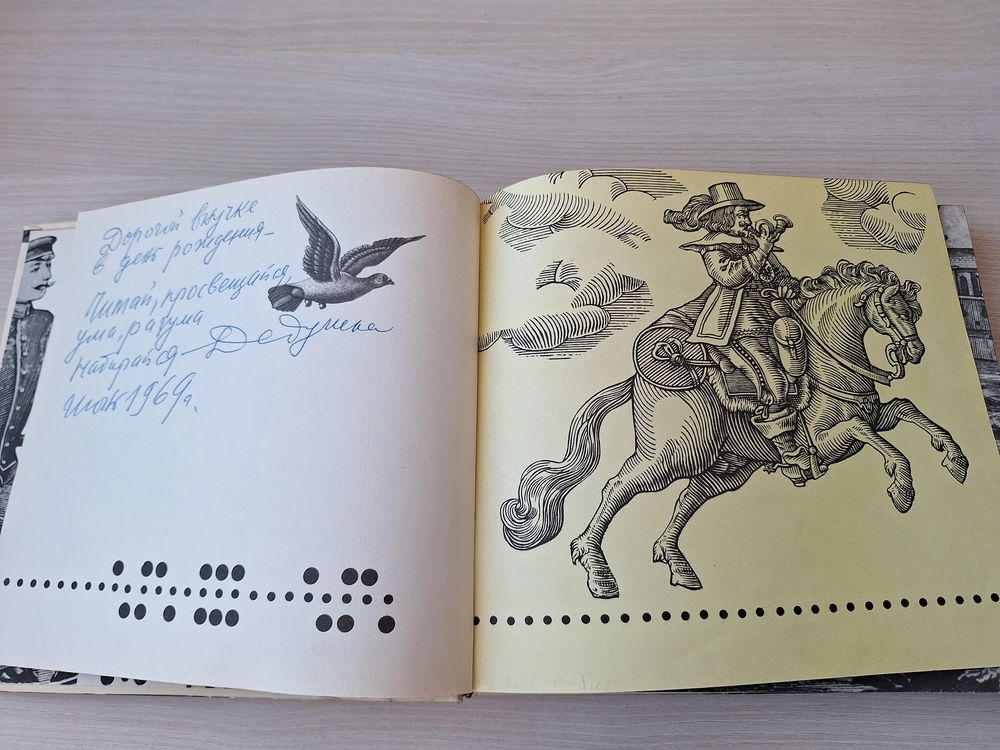 Дорогой внучке
в день рождения–
Читай, просвещайся,
ума, разума
набирайся – Дедушка
1969 г.